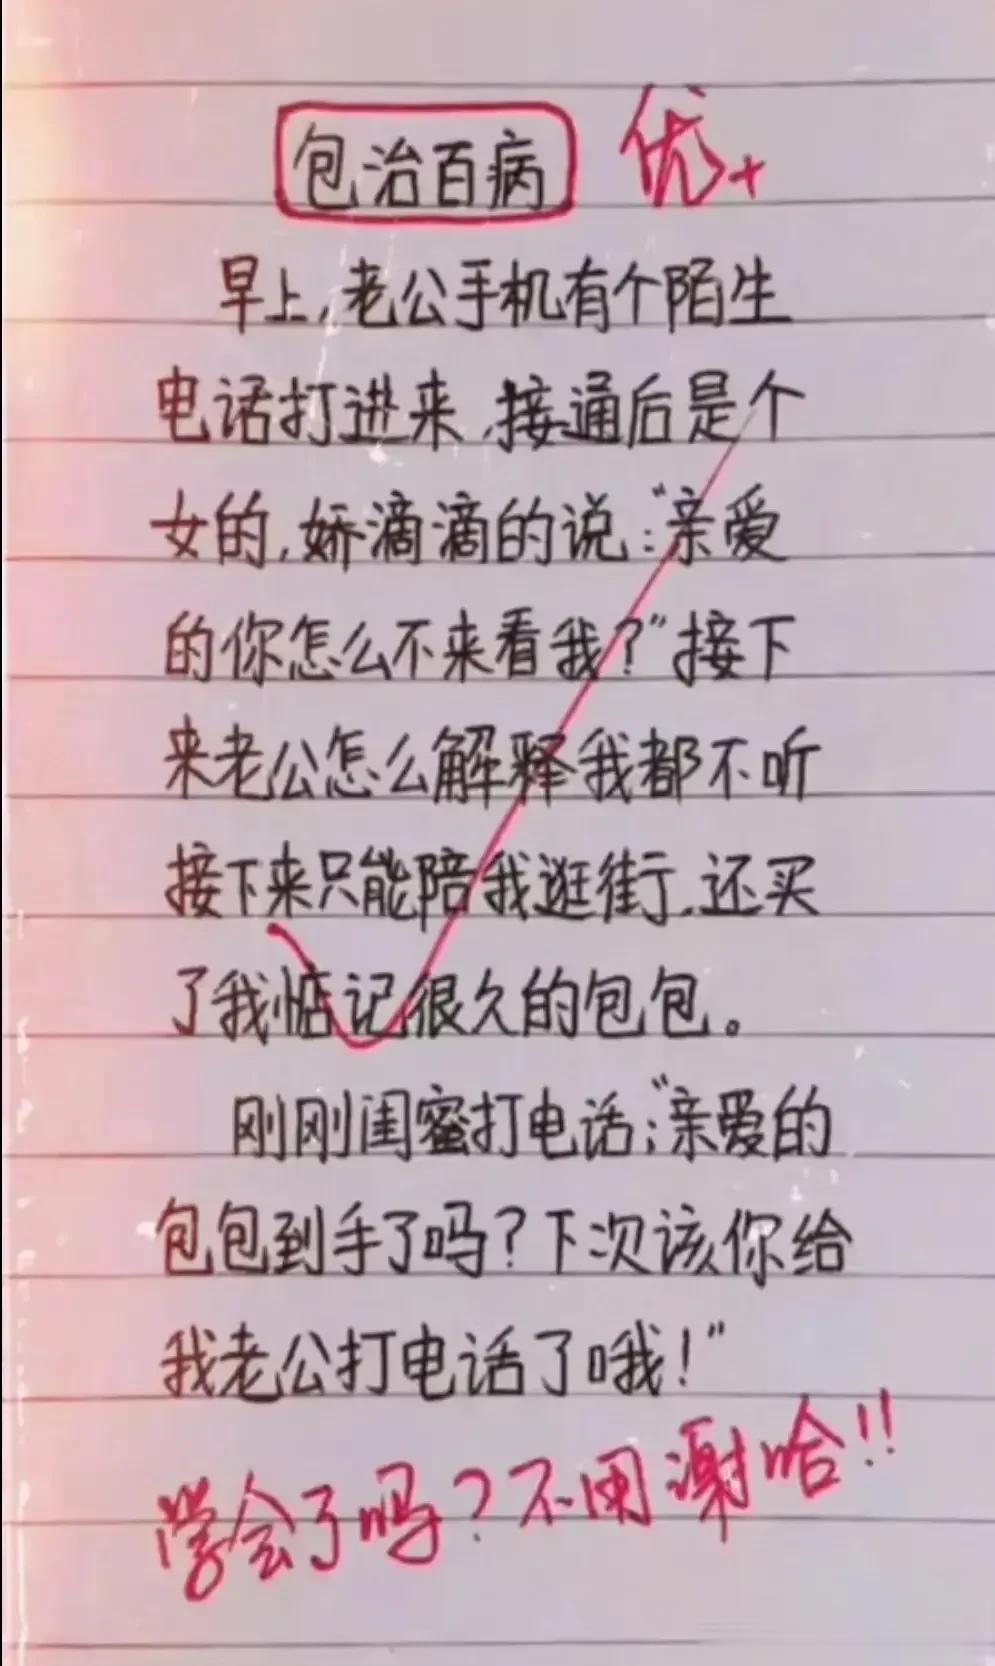 包治百病 优+
早上,老公手机有个陌生
电话打进来,接通后是个
女的,娇滴滴的说:“亲爱
的你怎么不来看我?”接下
来老公怎么解释我都不听
接下来只能陪我逛街.还买
了我惦记很久的包包。
刚刚闺蜜打电话:“亲爱的
包包到手了吗?下次该你给
我老公打电话了哦!”
学会了吗?不用谢哈!!